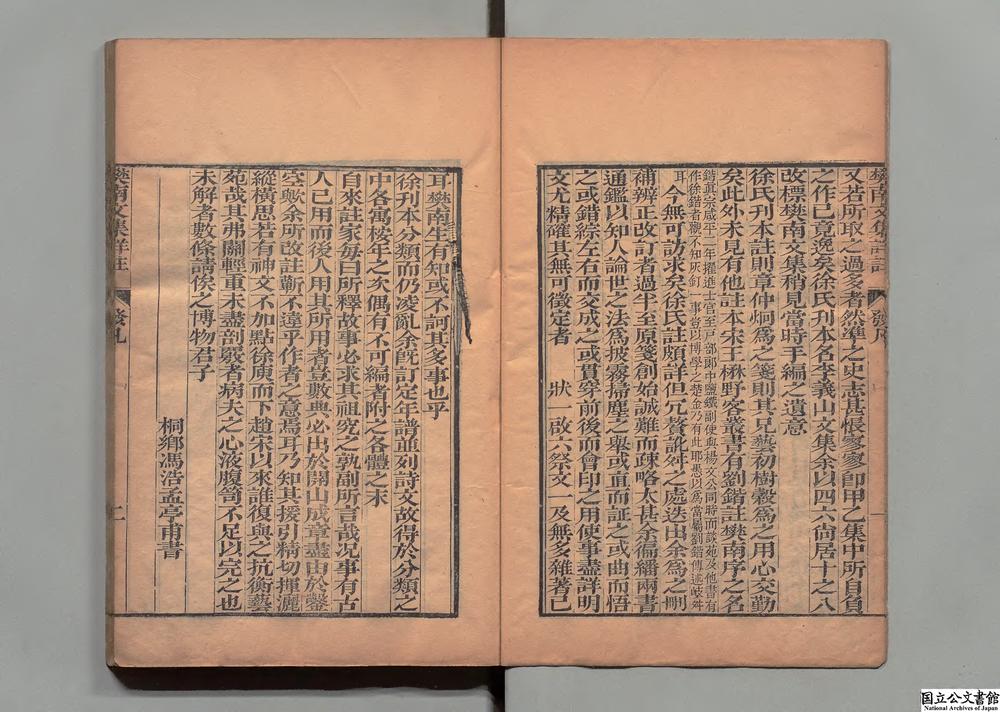 又若所取之過多者然準之史志甚悵寥寥卽甲乙集中所自負
之作已竟逸矣徐氏刊本名李義山文集余以四六尙居十之八
改標樊南文集稍見當時手編之遺意
徐氏刊本註則章仲烱爲之箋則其兄藝初樹穀爲之用心交勤
矣此外未見有他註本宋王楙野客叢書有劉鍇註樊南序之名
鍇眞宗咸平二年擢進士官至戸部郞中鹽鐵副使與楊文公同時而談苑及他書有
作徐鍇者魏不知灰釘一事豈以博學之楚金乃有此耶愚以爲當屬劉鍇傳述歧舛
耳今無可訪求矣徐氏註頗詳但冗贅訛舛之處迭出余爲之刪
補辨正改訂者過半至原箋創始誠難而疎略太甚余徧繙兩書
通鑑以知人論世之法爲披霧掃塵之舉或直而証之或曲而悟
之或錯綜左右而交成之或貫穿前後而會印之用使事盡詳明
文尤精確其無可徵定者 狀一啟六祭文一及無多雜著已
耳樊南生有知或不訶其多事也乎
徐刊本分類而仍淩亂余旣訂定年譜並列詩文故得於分類之
中各寓按年之次偶有不可編者附之各體之末
自來註家每曰所釋故事必求其祖究之孰副所言哉况事有古
人已用而後人用其所用者豈數典必出於開山成章盡由於鑿
空歟余所改註蘄不遠乎作者之意焉耳乃知其援引精切揮灑
縱橫思若有神文不加點徐庾而下趙宋以來誰復與之抗衡藝
苑哉其弗關輕重未盡剖覈者病夫之心液腹笥不足以完之也
未解者數條請俟之博物君子
桐鄕馮浩孟亭甫書
樊南文集詳註
發凡
二
國立公文書館
National Archives of Japan